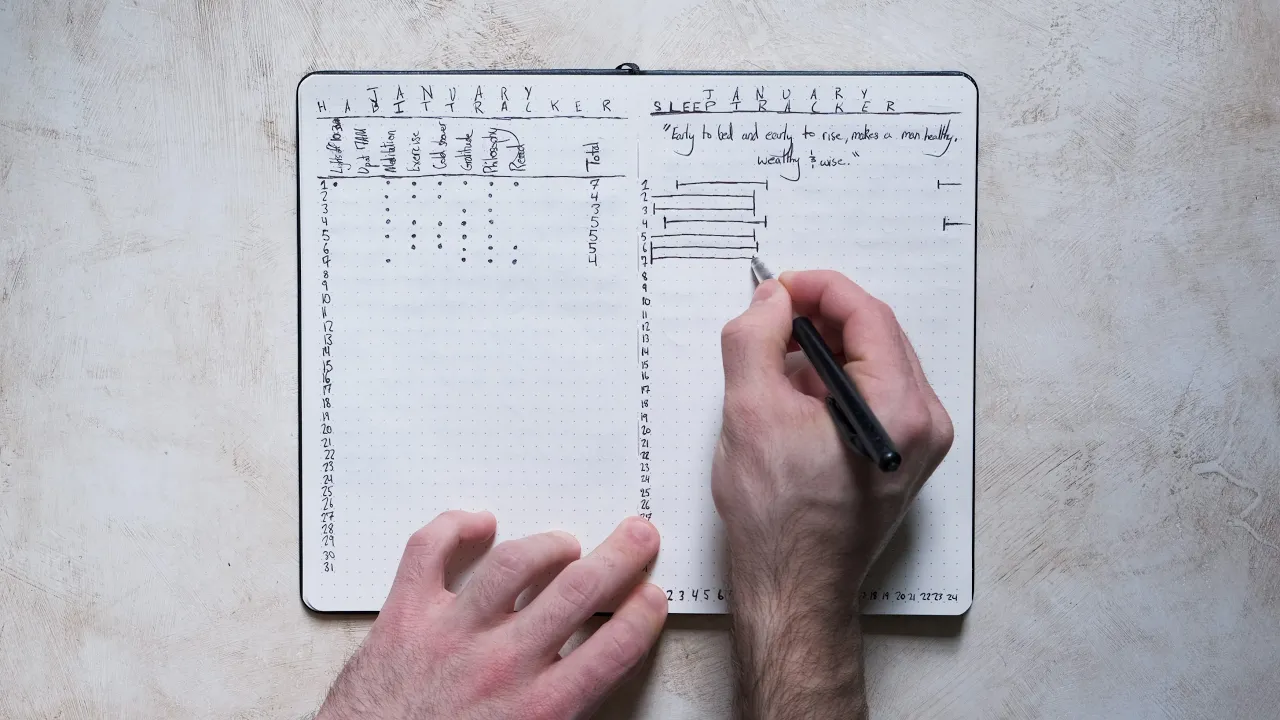 JANUARY
HABIT TRACKER
Meditation
Exercise
Cold shower
Gratitude
Philosophy
Read
Total
1 7
2 4
3 3
4 5
5 5
6 5
7 4
8
9
10
11
12
13
14
15
16
17
18
19
20
21
22
23
24
25
26
27
28
29
30
31
JANUARY
SLEEP TRACKER
"Early to bed and early to rise, makes a man healthy,
wealthy & wise."
1
2
3
4
5
6
7
8
9
10
11
12
13
14
15
16
17
18
19
20
21
22
23
24
25
26
27
2 3 4 5 6 18 19 20 21 22 23 24